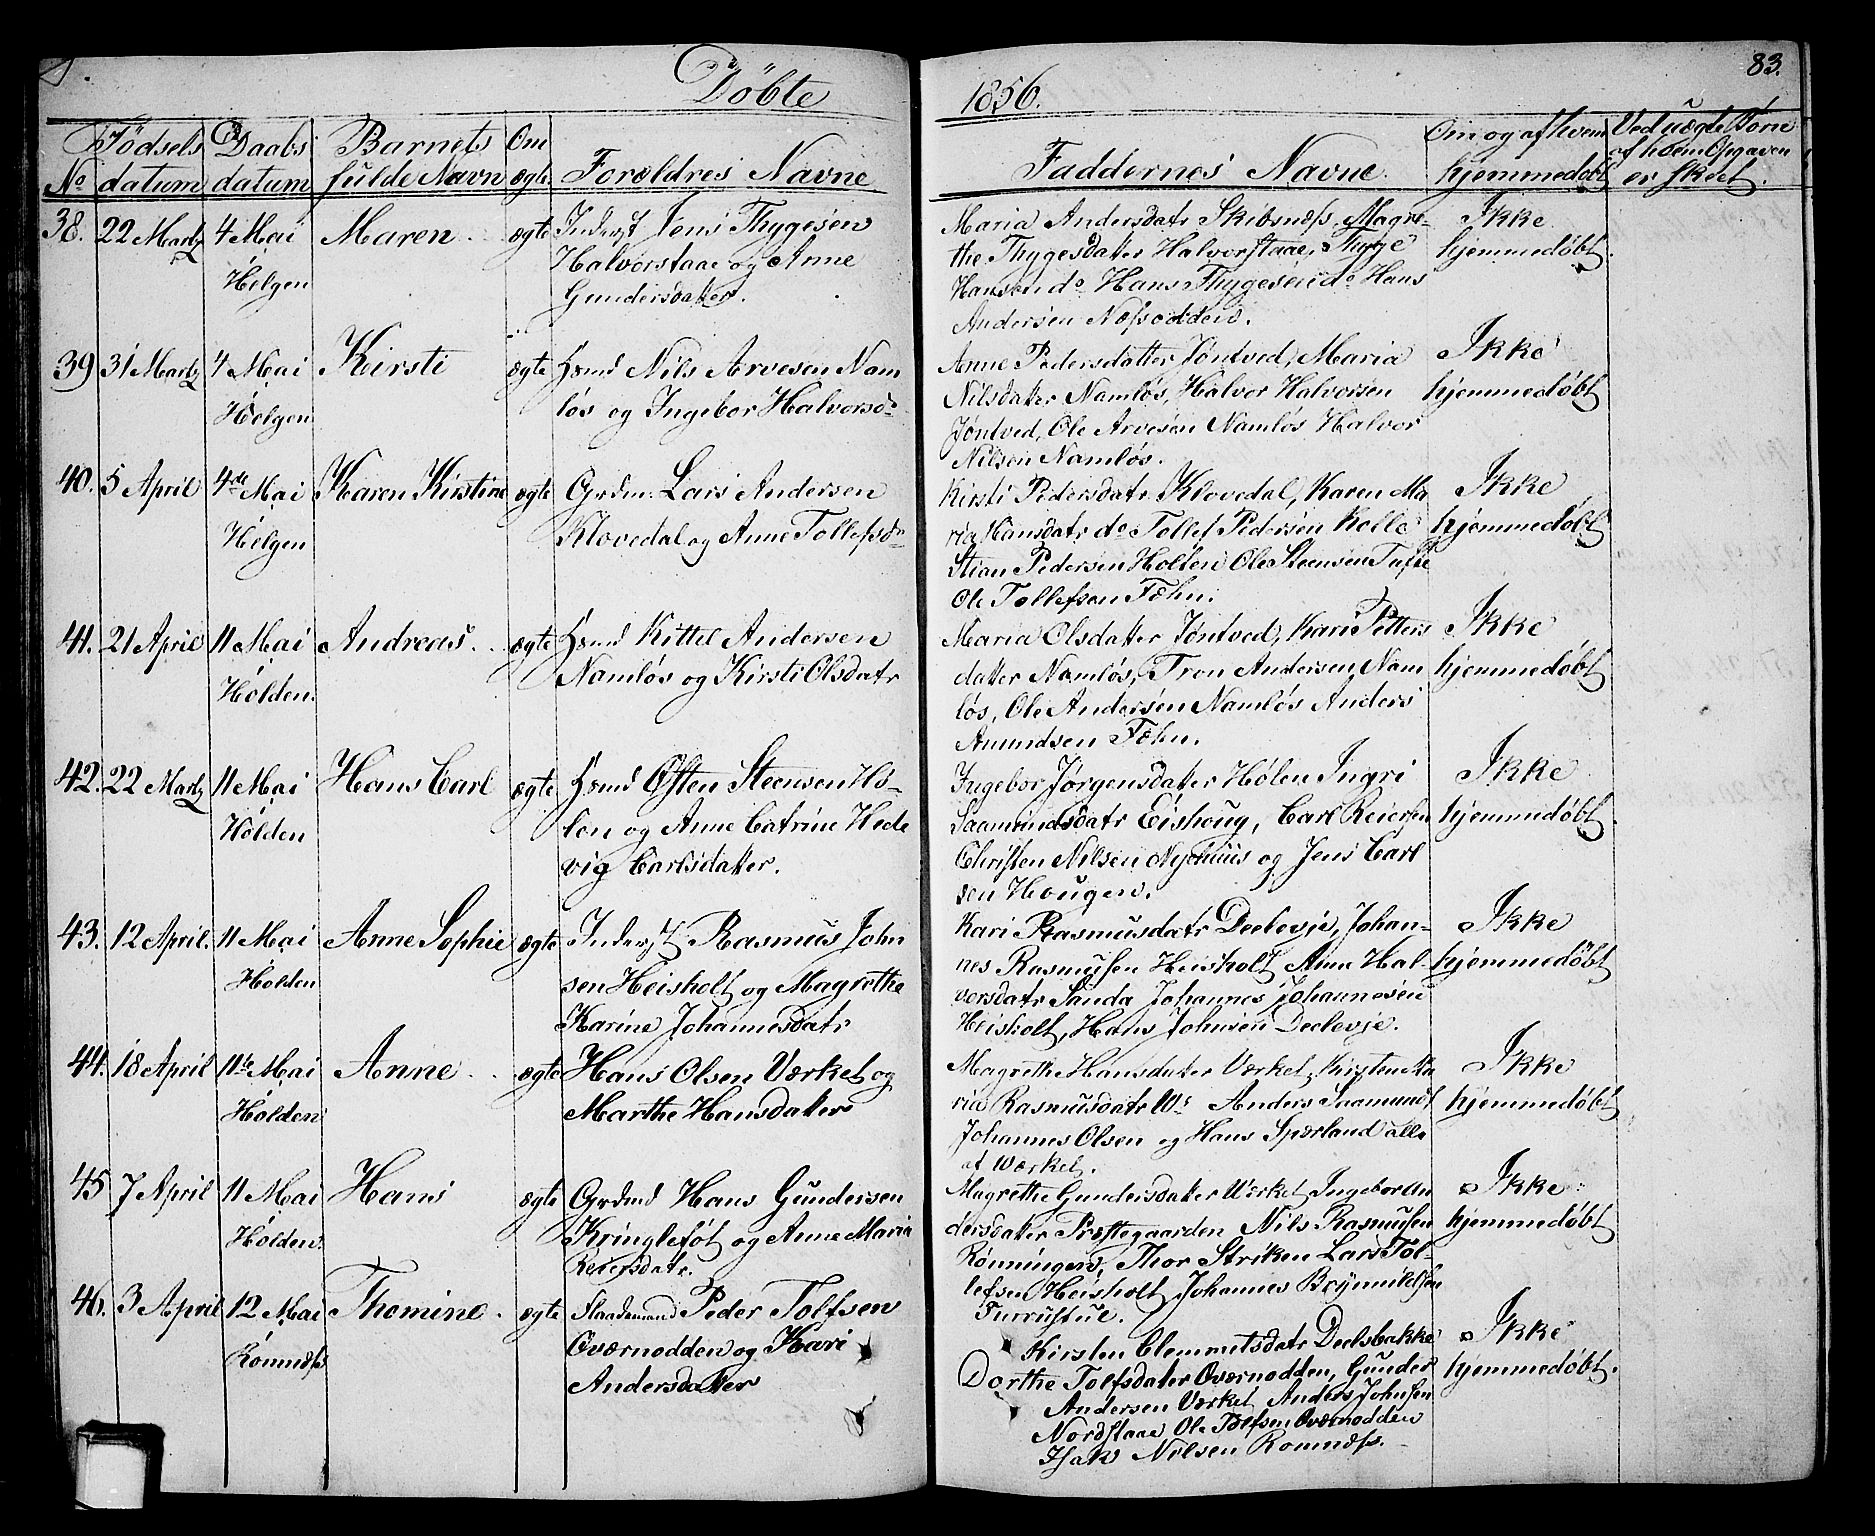 Döbte
1856.
83.
No
Födsels datum
Daabs datum
Barnets fulde Navn
Om ægte
Forældres Navne
Faddernes Navne.
Om og af hvem hjemmedøbt
Ved uægte Børn af hvem Opgaven er skeet.
38. 22 Martz 4 Mai Helgen
Maren.
ægte
Inderst Jens Thygesen
Halvorstaae og Anne
Gundersdater.
Maria Andersdatr Skibsnæss, Magre-
the Thygesdater Halvorstaae, Thyge
Hansen do Hans Thygesen do Hans
Andersen Næsodden.
Ikke
hjemmedøbt.
39 31 Martz 4 Mai Helgen
Kirsti
ægte
Hsmd Nils Arvesen Nam
løs og Ingebor Halvorsdr
Anne Pedersdatter Jøntved, Maria
Nilsdater Namløs, Halvor Halvorsen
Jøntved, Ole Arvesen Namløs Halvor
Nilsen Namløs.
Ikke
hjemmedøbt
40. 5 April 4de Mai Helgen
Karen Kirstine
ægte
Grdm. Lars Andersen
Klovedal og Anne Tollefsdr
Kirsti Pedersdatr Klovedal, Karen Ma
ria Hansdatr do Tollef Pedersen Holte
Stian Pedersen Holten Ole Steensen Tufte
Ole Tollefsen Fæhn.
Ikke
hjemmedøbt
41. 21 April 11 Mai Holden.
Andreas.
ægte
Hsmd Kittil Andersen
Namløs og Kirsti Olsdatr
Maria Olsdatter Jøntved, Kari Petters
datter Namløs, Tron Andersen Nam
løs, Ole Andersen Namløs Anders
Amundsen Fæhn.
Ikke
hjemmedøbt
42. 22 Martz 11 Mai Holden
Hans Carl
ægte
Hsmd Østen Steensen Ho-
len og Anne Catrine Hede
vig Carlsdatter.
Ingebor Jørgensdater Holen Ingri
Saamundsdatr Eishoug, Carl Reiersen
Christen Nilsen Nyehuus og Jens Carl
sen Hougen.
Ikke
hjemmedøbt.
43. 12 April. 11 Mai Holden
Anne Sophie
ægte
Inderst Rasmus John
sen Heisholt og Magrethe
Karine Johannesdatr
Kari Rasmusdatr Deelevje, Johan-
nes Rasmusen Heisholt Anne Hal-
vorsdatr Sanda Johannes Johannesen
Heisholt, Hans Johnsen Deelevje.
Ikke
hjemmedøbt
44. 18 April 11te Mai Holden
Anne.
ægte
Hans Olsen Værket og
Marthe Hansdater
Magrethe Hansdater Værket, Kirsten Ma
ria Rasmusdatr Wr Anders Saamunds
Johannes Olsen og Hans Spærland alle
af Værket.
Ikke
hjemmedøbt
45 7 April 11 Mai Holden.
Hans
ægte
Grdmd Hans Gundersen
Kringlefot og Anne Maria
Reiersdatr.
Magrethe Gundersdater Værket Ingebor An
dersdater Præstegaarden Nils Rasmusen
Rønningen, Thor Striken Lars Tol-
lefsen Heisholt Johannes Brynnildsen
Furrustue.
Ikke
hjemmedøbt
46. 3 April 12 Mai Romnæs
Thomine.
ægte
Staademand Peder Tolfsen
Oværnodden og Kari
Andersdater
Kirsten Clemmetsdatr Deelsbakke
Dorthe Tolfsdater Oværnodden, Gunder
Andersen Værket Anders Johnsen
Nordstaae Ole Tolfsen Oværnodden
Isak Nilsen Romnæs.
Ikke
hjemmedøbt.